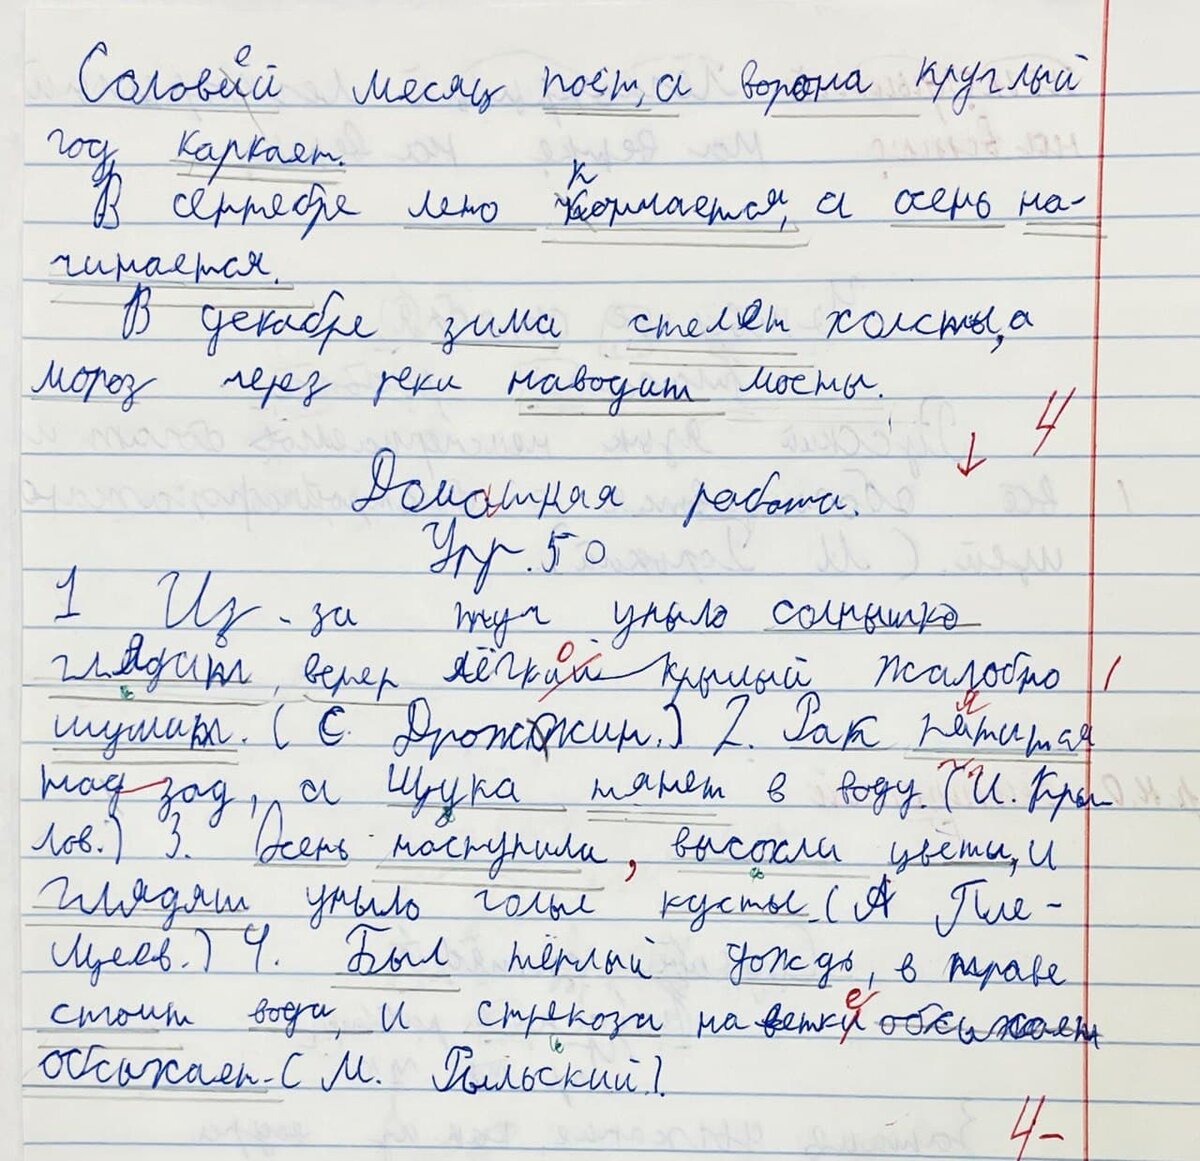 Соловей месяц поёт, а ворона круглый
год каркает.
В сентябре лето кончается, а осень на-
чинается.
В декабре зима стелет холсты, а
мороз через реки наводит мосты.
4
Домашняя работа.
Упр. 50
1 Из-за туч уныло солнышко
глядит, ветер лёгкокрылый жалобно
шумит. (С. Дрожжин.) 2. Рак пятится
назад, а Щука тянет в воду. (И. Кры-
лов.) 3. Осень наступила, высохли цветы, и
глядят уныло голые кусты. (А Пле-
щеев.) 4. Был тёплый дождь, в траве
стоит вода, и стрекоза на ветке обсыхает
обсыхает. (М. Рыльский).
4-